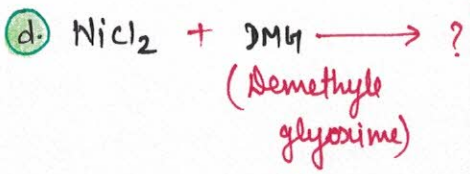 d. NiCl2 + DMG ⟶ ?
(Demethyle
glyoxime)